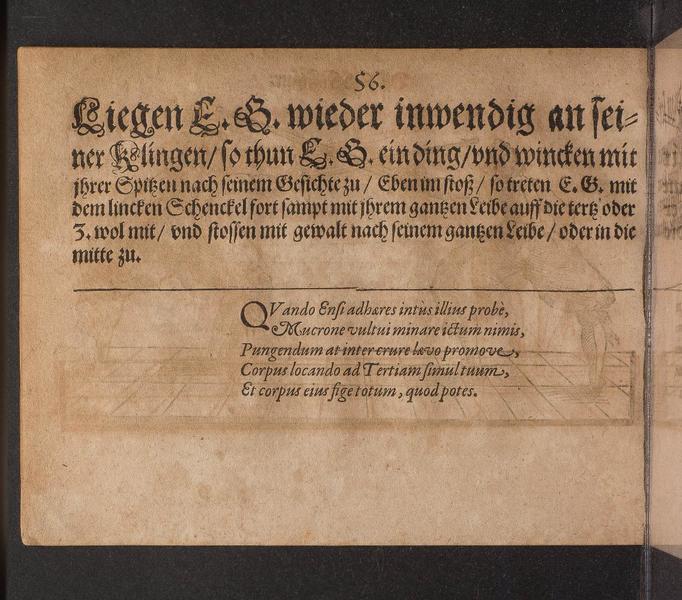 56.
Liegen E. G. wieder inwendig an sei-
ner Klingen/ so thun E. G. ein ding/ vnd wincken mit
jhrer Spitzen nach seinem Gesichte zu / Eben im stoß / so treten E. G. mit
dem lincken Schenckel fort sampt mit jhrem gantzen Leibe auff die tertz oder
3. wol mit / vnd stossen mit gewalt nach seinem gantzen Leibe / oder in die
mitte zu.
QVando Ensi adhæres intùs illius probè,
Mucrone vultui minare ictum nimis,
Pungendum at inter crure lævo promove,
Corpus locando ad Tertiam simul tuum,
Et corpus eius fige totum, quod potes.